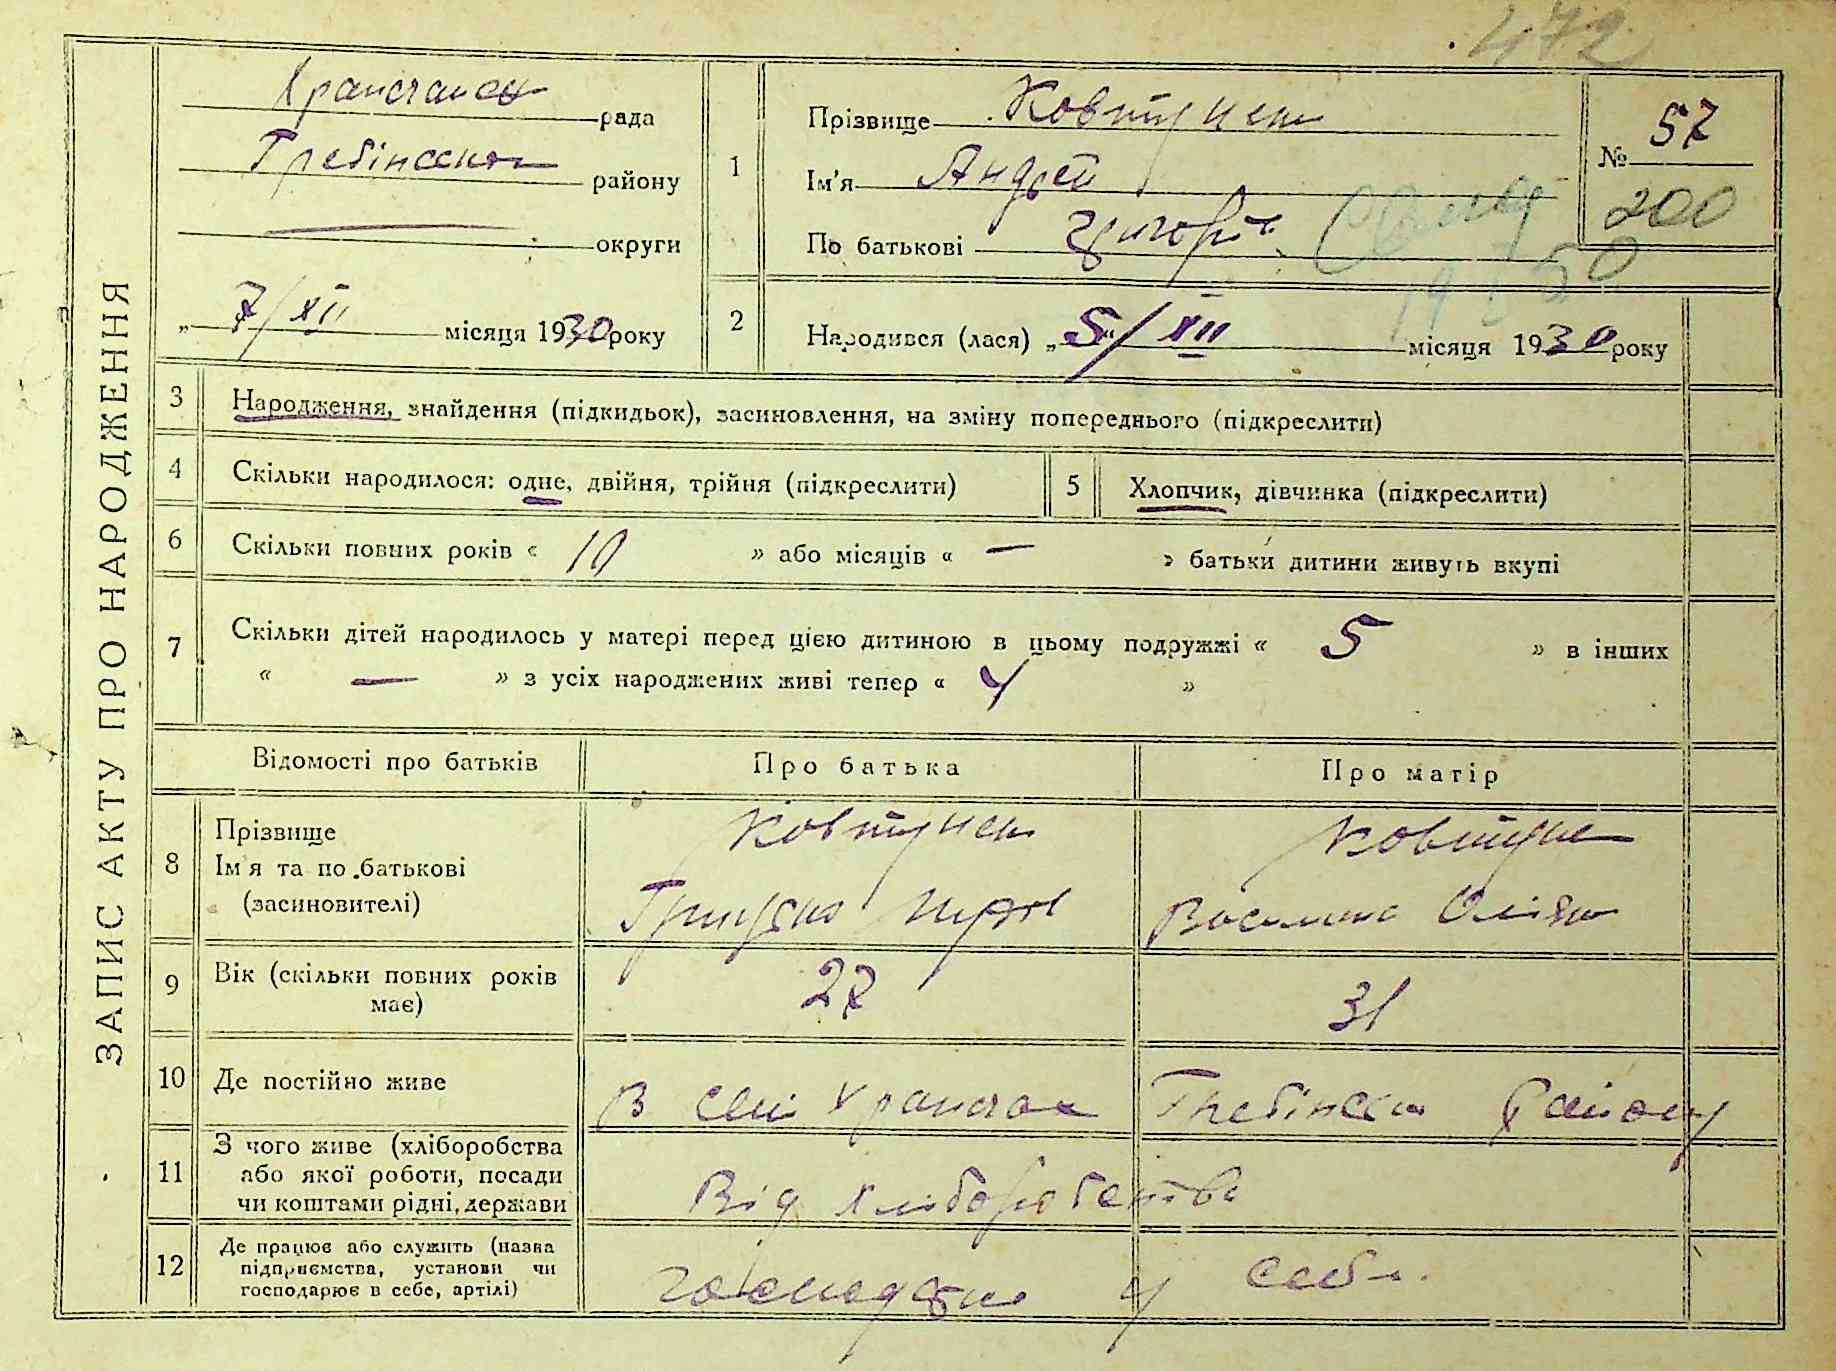 472
ЗАПИС АКТУ ПРО НАРОДЖЕННЯ
рада
Гребінськ району
округи
„ 7/XII місяця 1930 року
1
Прізвище Ковтунен
Ім'я Андрей
По батькові Григорів
№ 57
200
1950
2
Народився (лася) „5/XII“ місяця 1930 року
3 Народження, знайдення (підкидьок), засиновлення, на зміну попереднього (підкреслити)
4 Скільки народилося: одне, двійня, трійня (підкреслити)
5 Хлопчик, дівчинка (підкреслити)
6 Скільки повних років « 10 » або місяців « — » батьки дитини живуть вкупі
7 Скільки дітей народилось у матері перед цією дитиною в цьому подружжі « 5 » в інших
« — » з усіх народжених живі тепер « 4 »
Відомості про батьків
Про батька
Про матір
8
Прізвище
Ім'я та по батькові
(засиновителі)
Ковтунен
Ковтуне
9
Вік (скільки повних років
має)
27
31
10 Де постійно живе
В селі Храпачах Гребінськ району
11
З чого живе (хліборобства
або якої роботи, посади
чи коштами рідні, держави
Від хліборобства
12
Де працює або служить (назва
підприємства, установи чи
господарює в себе, артілі)
у себе.